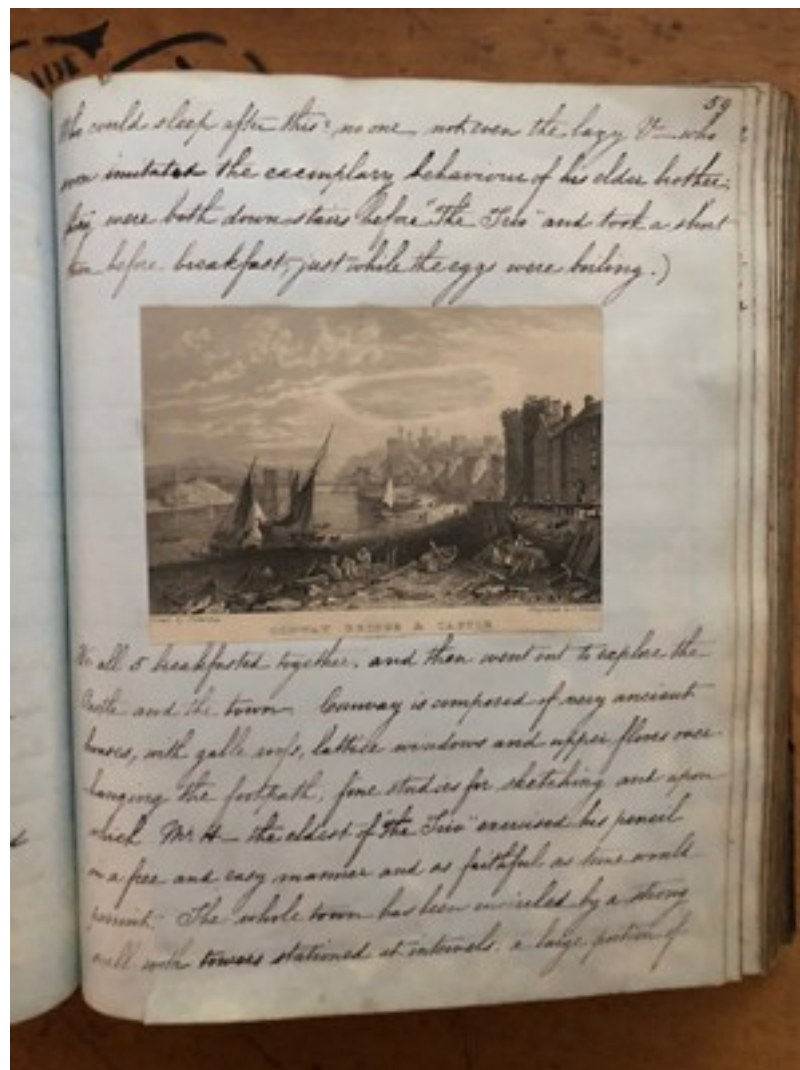 59
Who could sleep after this? no one, not even the lazy V— who
even imitated the exemplary behaviour of his elder brother.
they were both down stairs before "The Trio" and took a short
before breakfast, just while the eggs were boiling.)
CONWAY BRIDGE & CASTLE
We all 5 breakfasted together, and then went out to explore the
Castle and the town. Conway is composed of very ancient
houses, with gable roofs, lattice windows and upper floors over-
hanging the footpath; fine studies for sketching and upon
which Mr. H— the eldest of "the Trio" exercised his pencil
in a free and easy manner and as faithful as time would
permit. The whole town has been encircled by a strong
wall with towers stationed at intervals. a large portion of